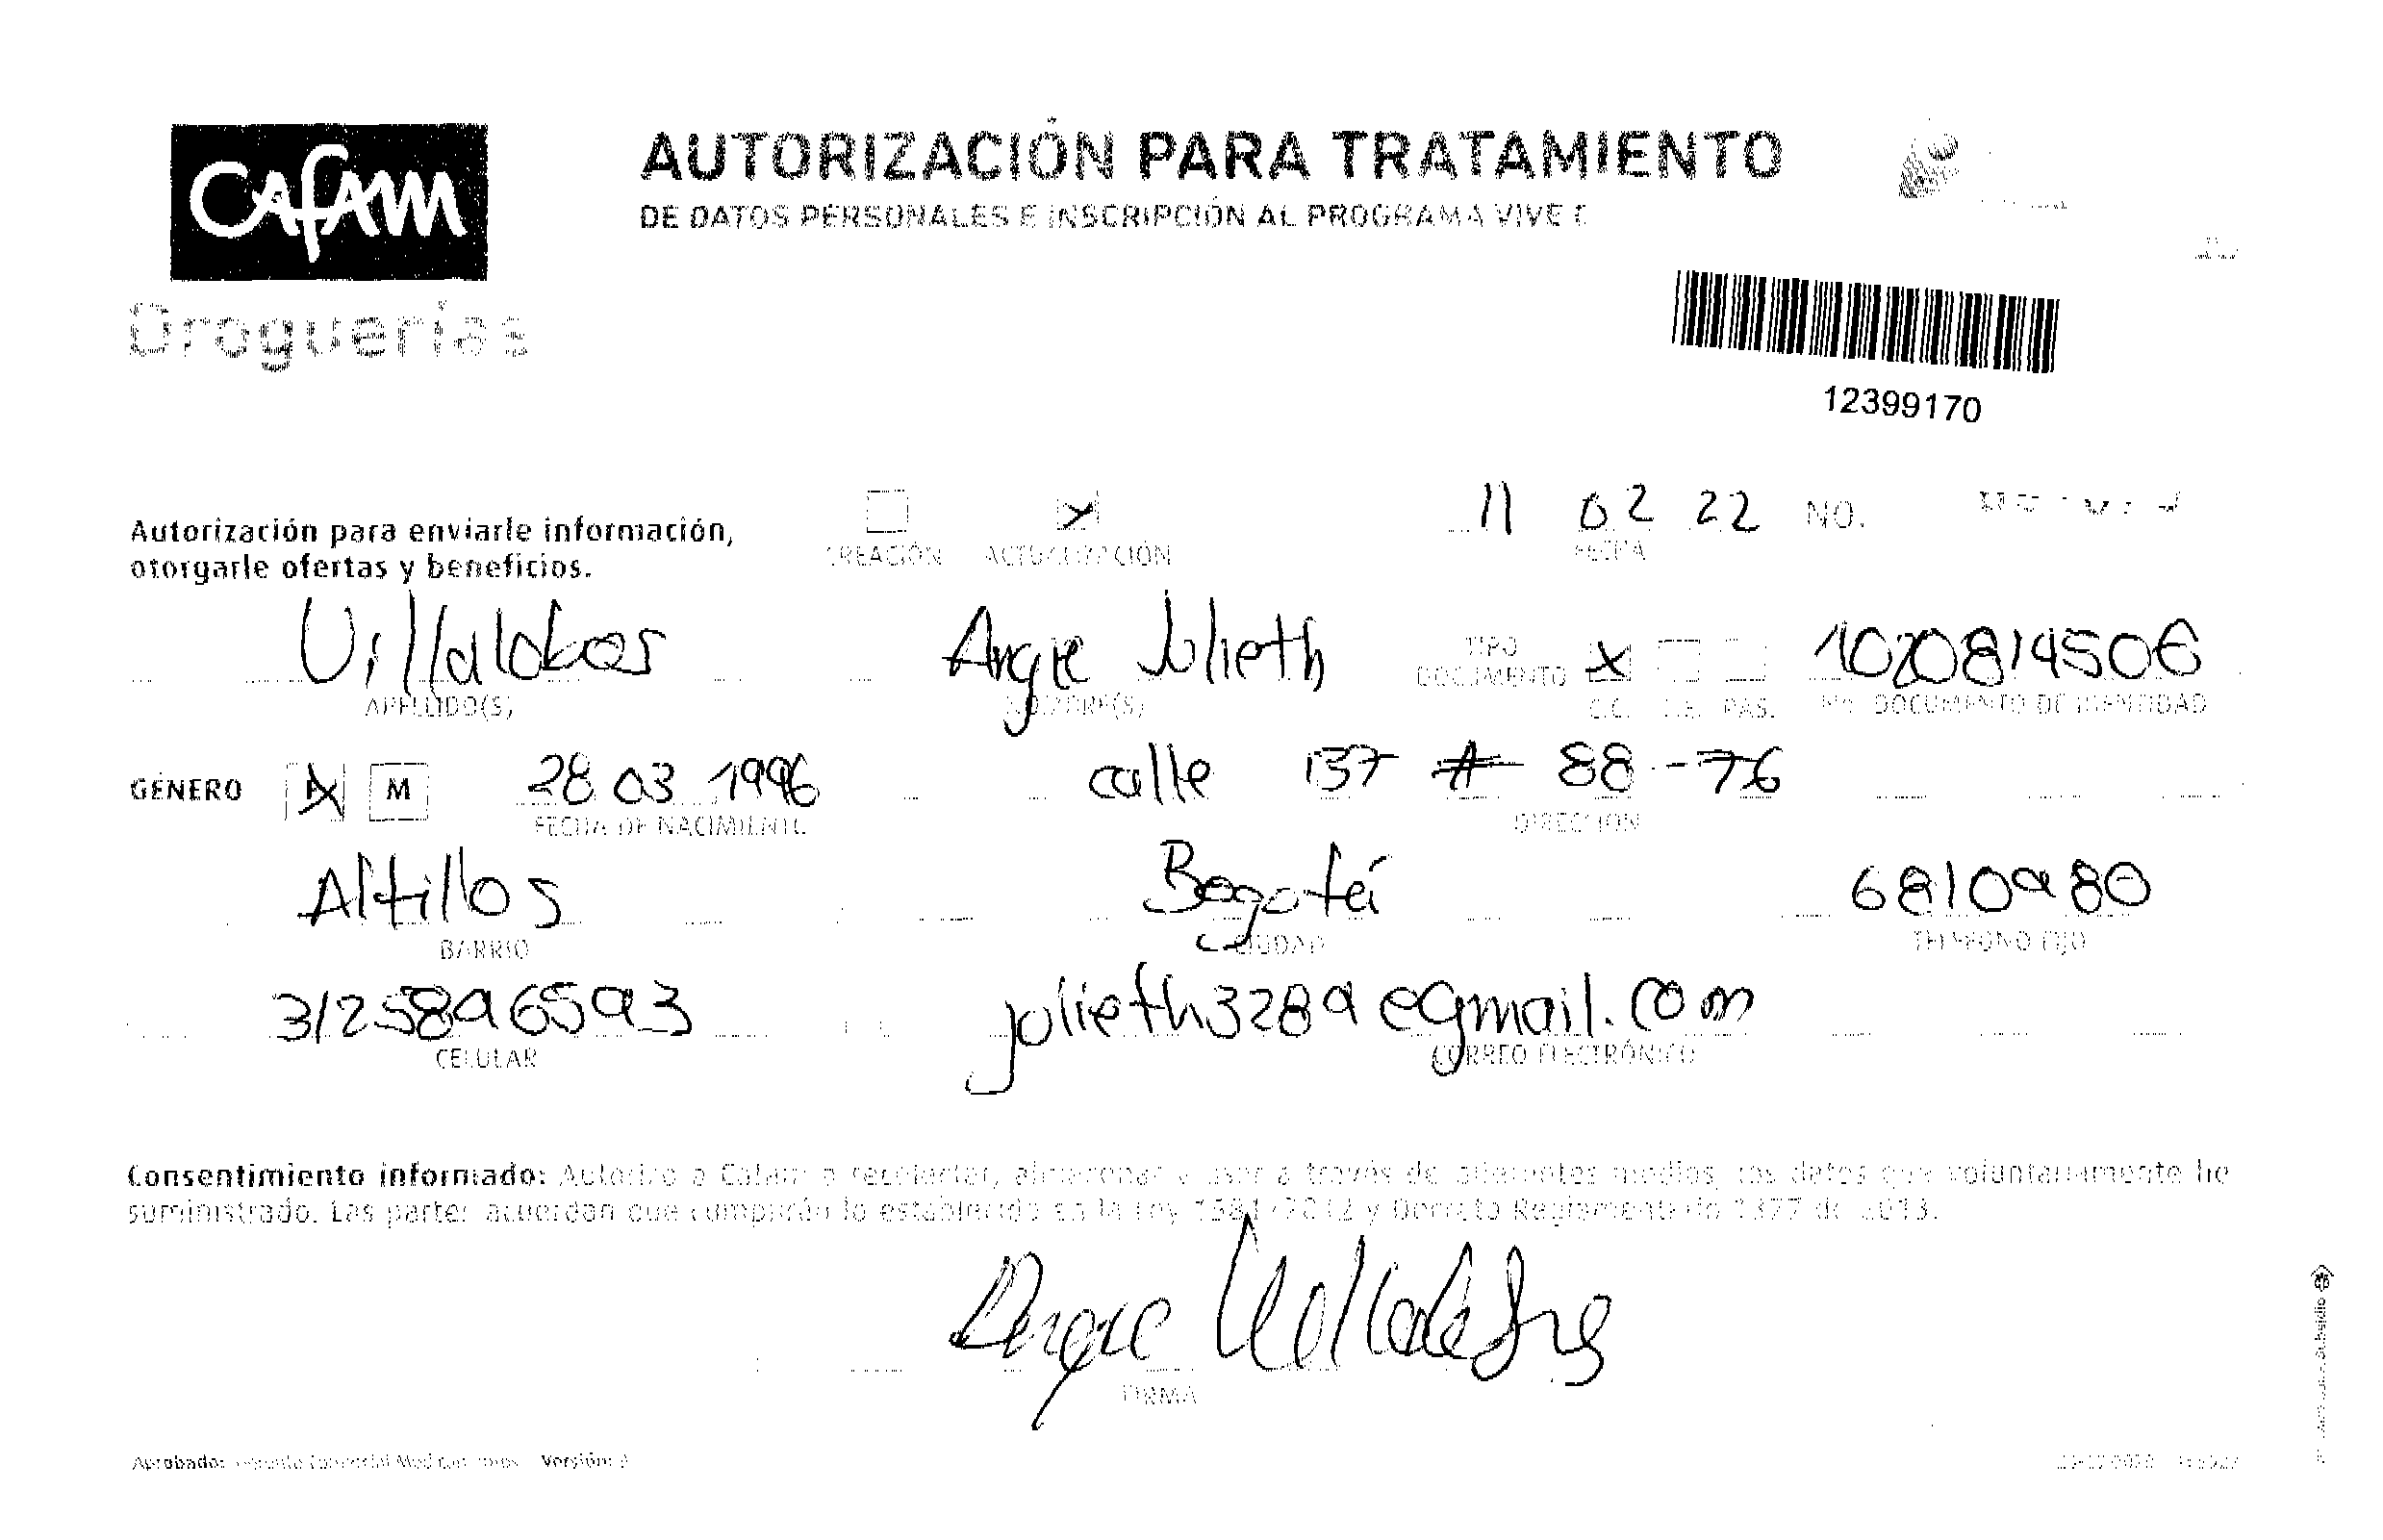 Cafam
AUTORIZACIÓN PARA TRATAMIENTO
DE DATOS PERSONALES E INSCRIPCIÓN AL PROGRAMA VIVE C
Droguerías
12399170
Autorización para enviarle información,
otorgarle ofertas y beneficios.
CREACIÓN ACTUALIZACIÓN
11 02 22 NO.
FECHA
Villalobos Angie Julieth TIPO DOCUMENTO X 1020814506
APELLIDO(S) NOMBRE(S) C.C. C.E. PAS. No. DOCUMENTO DE IDENTIDAD
GÉNERO X M 28 03 1996 calle 137 # 88 - 76
FECHA DE NACIMIENTO DIRECCIÓN
Altillos Bogotá 6810980
BARRIO CIUDAD TELÉFONO FIJO
3125896593 julieth3289@gmail.com
CELULAR CORREO ELECTRÓNICO
Consentimiento informado: Autorizo a Cafam a recolectar, almacenar y usar a través de diferentes medios, los datos que voluntariamente he
suministrado. Las partes acuerdan que cumplirán lo establecido en la Ley 1581/2012 y Decreto Reglamentario 1377 de 2013.
Angie Villalobos
FIRMA
Aprobado: Gerente Comercial Medicamentos Versión: